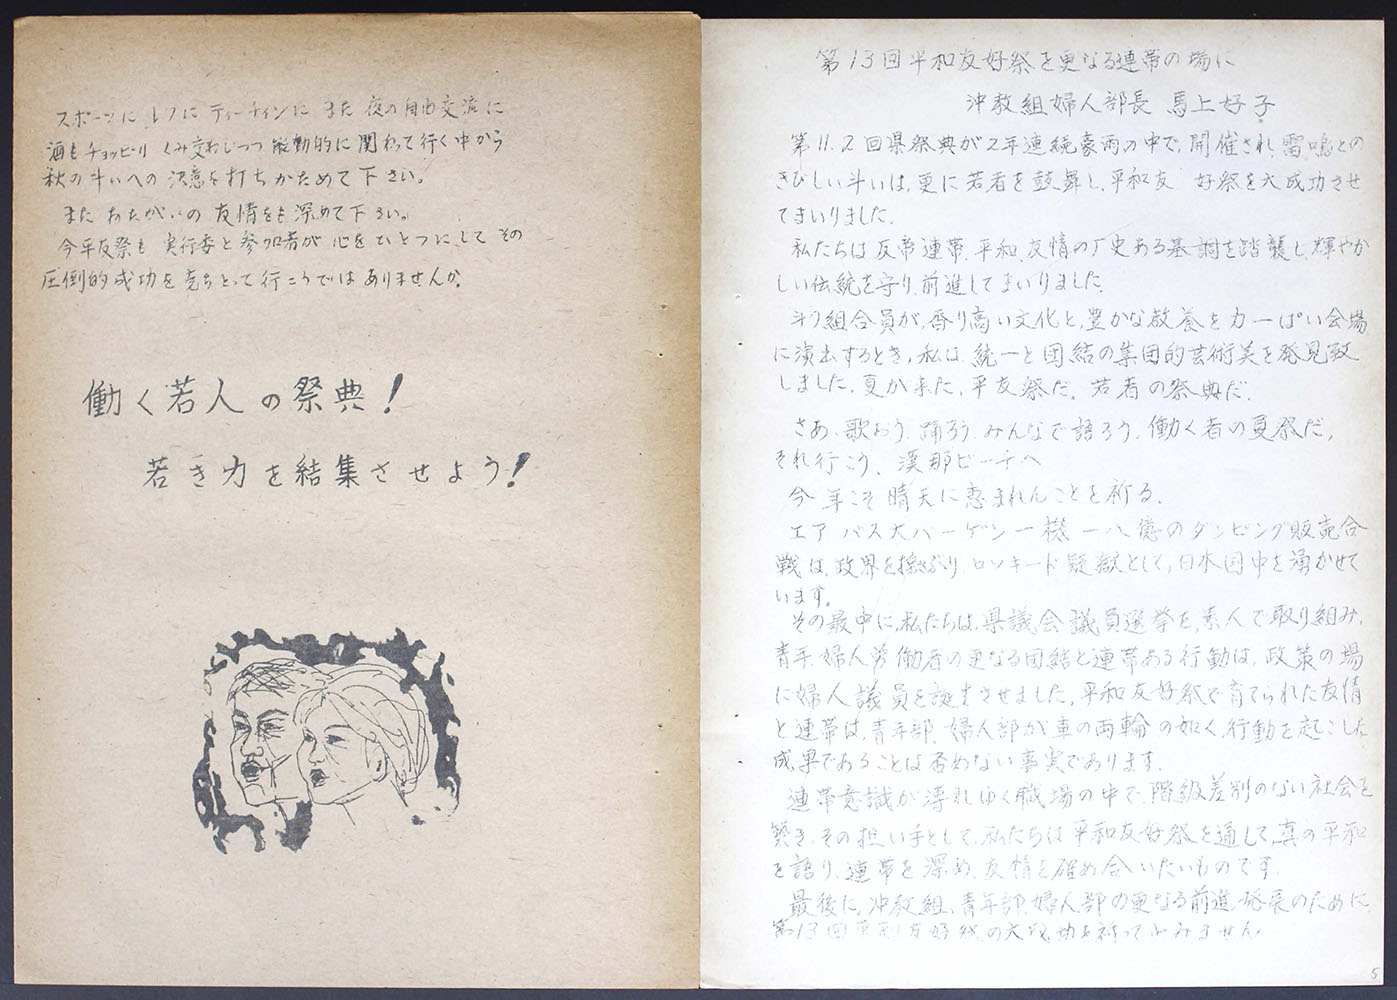 スポーツに レクに ティーチインに また 夜の自由交流に
酒もチョッピリ くみ交わしつつ 能動的に関わって行く中から
秋の斗いへの 決意を打ちかためて下さい。
また おたがいの 友情をも深めて下さい。
今平友祭も 実行委と参加者が心をひとつにして その
圧倒的成功を克ちとって行こうではありませんか。
働く若人の祭典!
若き力を結集させよう!
第13回平和友好祭を更なる連帯の場に
沖教組婦人部長 馬上好子
第11.2回県祭典が2年連続豪雨の中で、開催され、雷鳴との
きびしい斗いは、更に若者を鼓舞し、平和友 好祭を大成功させ
てまいりました。
私たちは反帝連帯、平和、友情の歴史ある基調を踏襲し、輝やか
しい伝統を守り、前進してまいりました。
斗う組合員が、香り高い文化と、豊かな教養を力一ぱい会場
に演出するとき、私は、統一と団結の集団的芸術美を発見致
しました。夏が来た、平友祭だ、若者の祭典だ。
さあ、歌おう、踊ろう、みんなで語ろう、働く者の夏祭だ、
それ行こう、漢那ビーチへ
今年こそ晴天に恵まれんことを祈る。
エアバス大バーゲン一機一八億のダンピング販売合
戦は、政界を揺さぶり、ロッキード疑獄として、日本国中を湧かせて
います。
その最中に、私たちは、県議会議員選挙を、素人で取り組み、
青年、婦人労働者の更なる団結と連帯ある行動は、政策の場
に婦人議員を誕生させました。平和友好祭で育てられた友情
と連帯は、青年部、婦人部が車の両輪の如く、行動を起こした
成果であることは否めない事実であります。
連帯意識が薄れゆく職場の中で、階級差別のない社会を
築き、その担い手として、私たちは平和友好祭を通して、真の平和
を語り、連帯を深め、友情を確め合いたいものです。
最後に、沖教組、青年部、婦人部の更なる前進発展のために
第13回平和友好祭の大成功を祈ってやみません
5